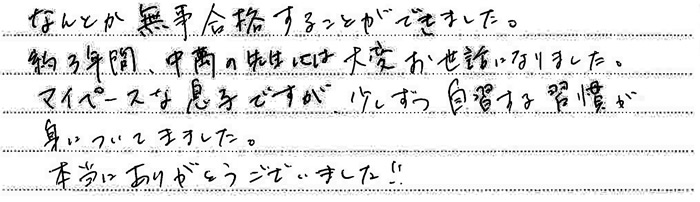 なんとか無事合格することができました。
約3年間、中萬の先生には大変お世話になりました。
マイペースな息子ですが、少しずつ自習する習慣が
身についてきました。
本当にありがとうございました!!